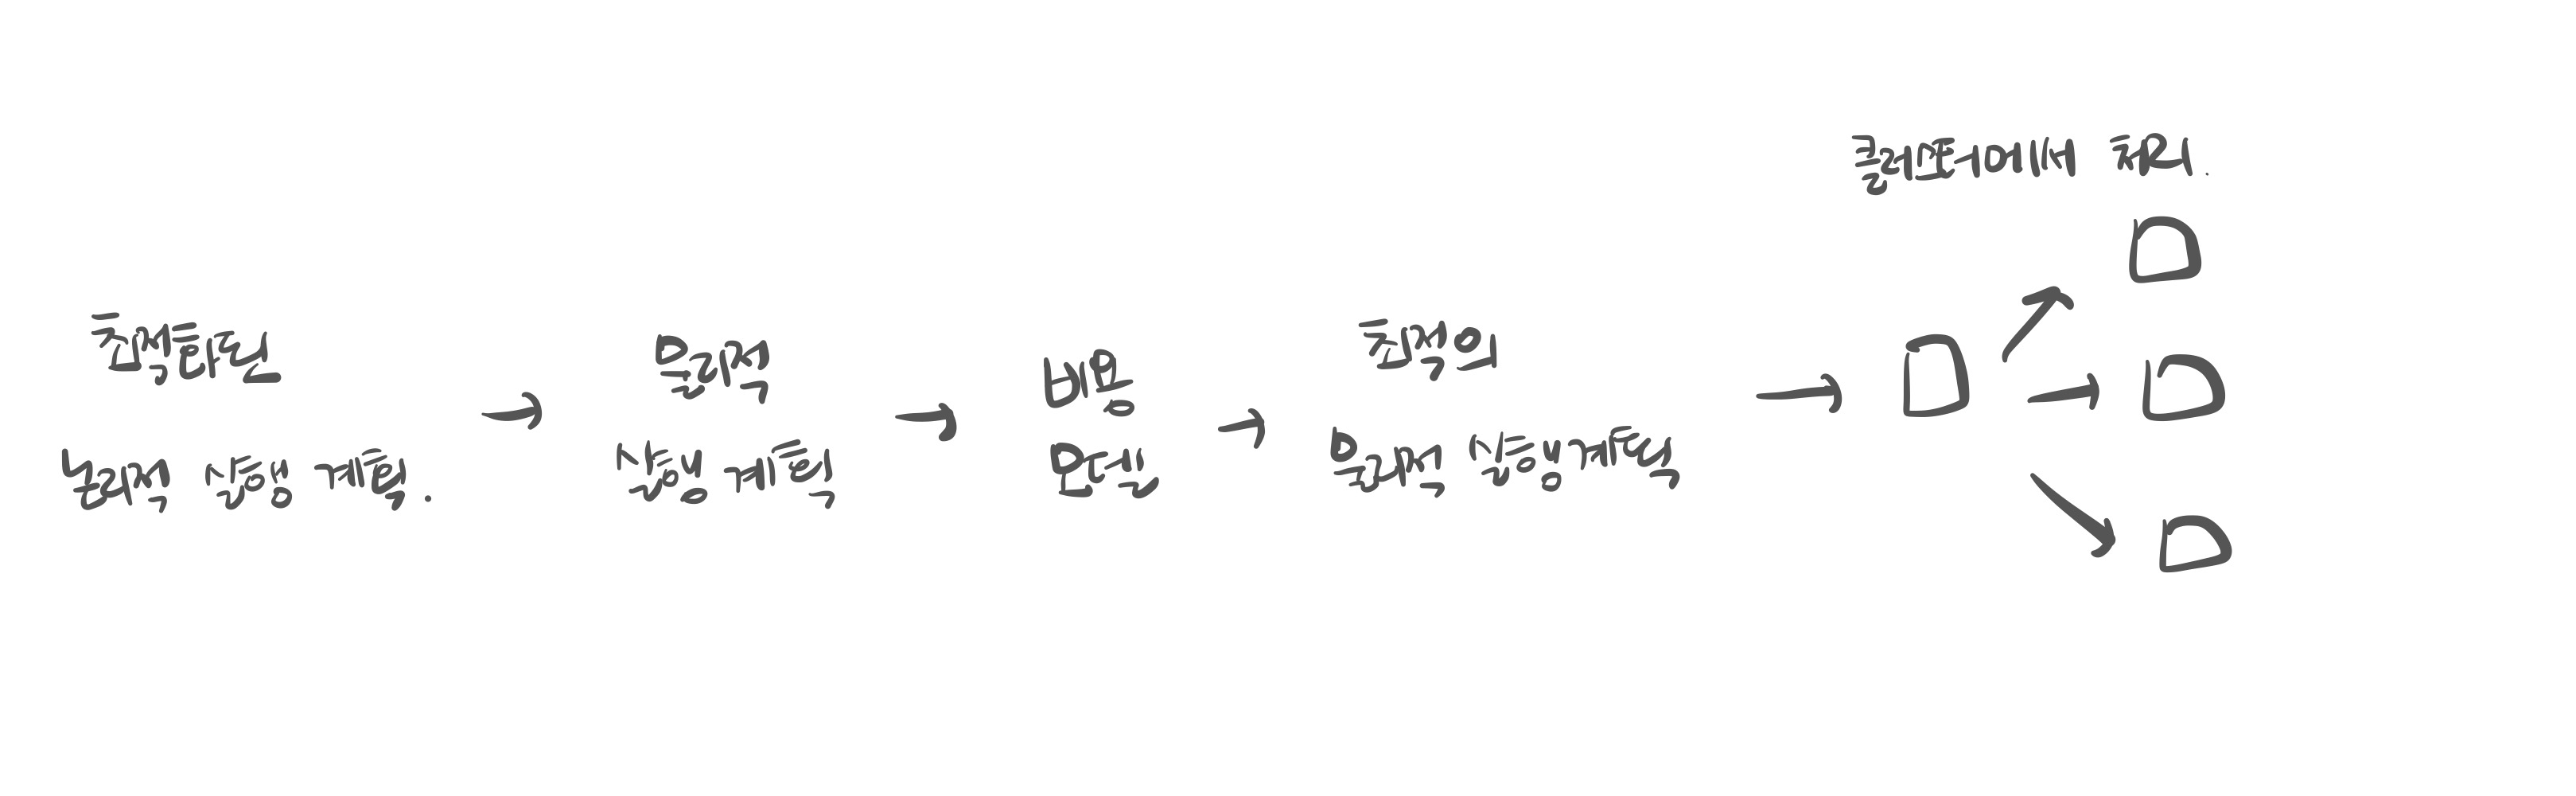 최적화된
논리적 실행 계획.
물리적
실행 계획
비용
모델
최적의
물리적 실행계획
클러스터에서 처리.